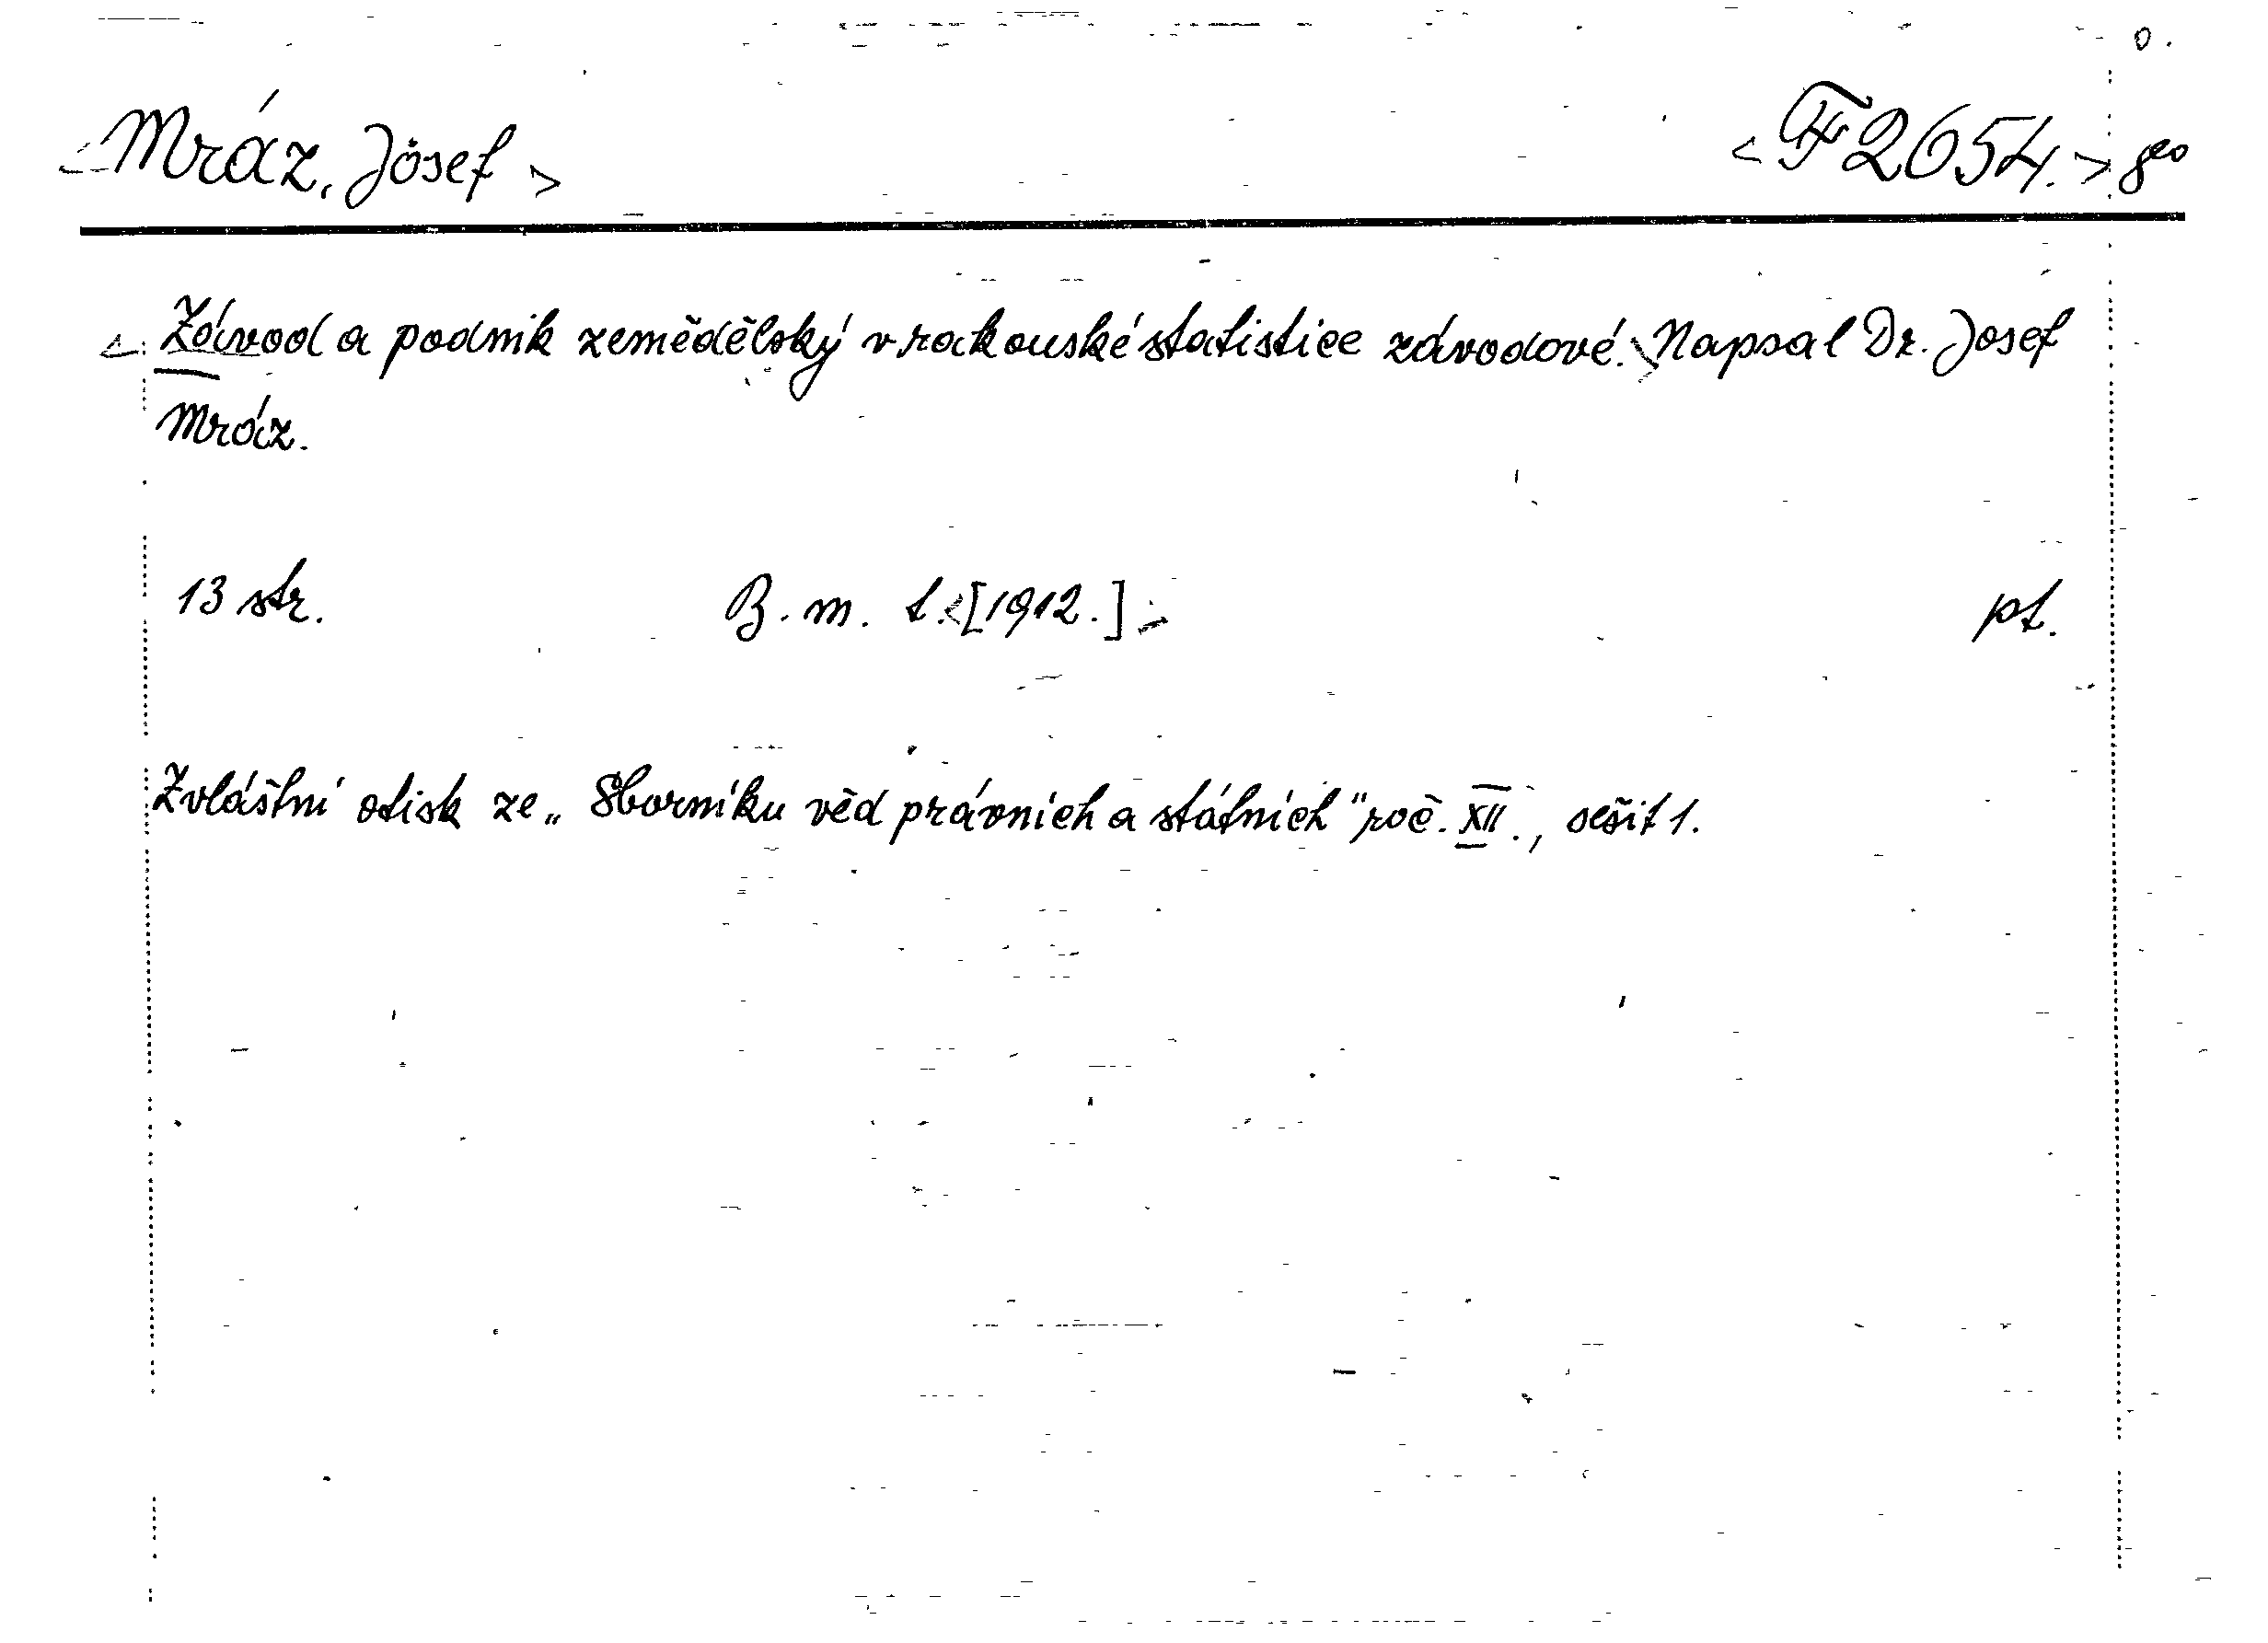 o.
<Mráz, Josef> <F 2654.> 8eo
<Závod a podnik zemědělský v rakouské statistice závodové.> Napsal Dr. Josef
Mráz.
13 str. B. m. t. <[1912.]> pt.
Zvláštní otisk ze „Sborníku věd právních a státních" roč. XII., sešit 1.